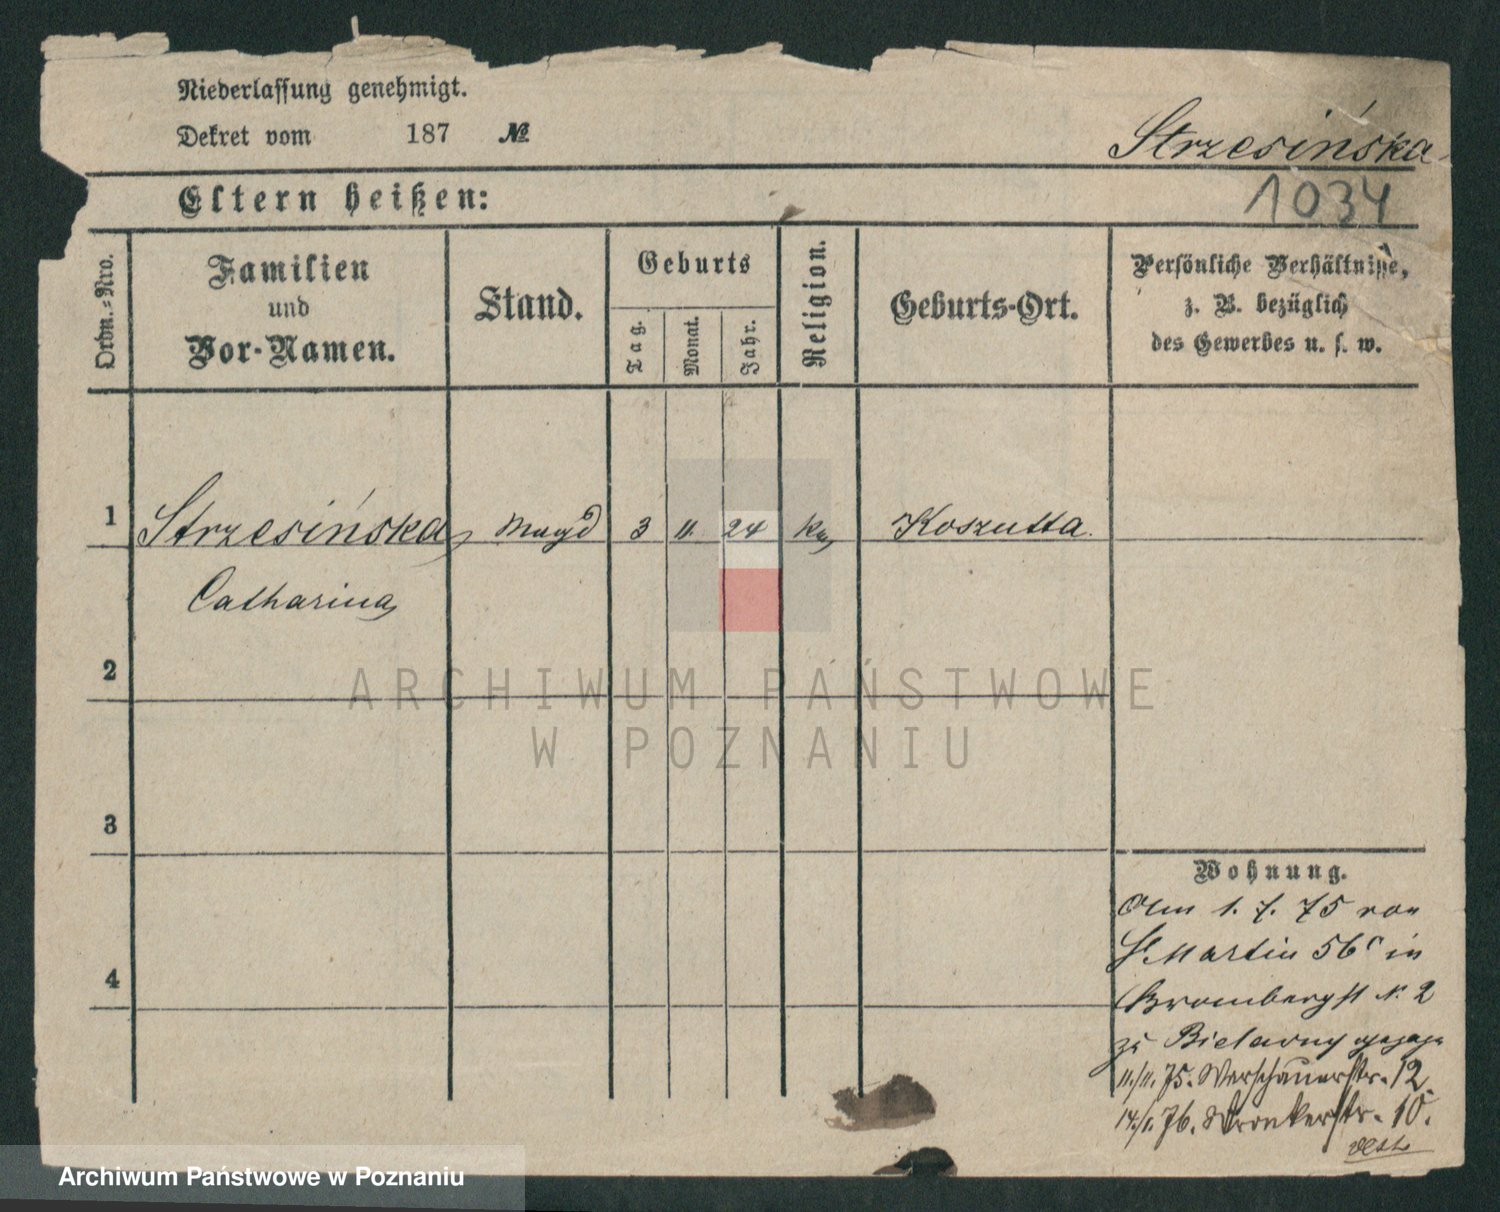 Niederlassung genehmigt.
Dekret vom 187 №
Strzesińska
1034
Eltern heißen:
Ordn.-Nro.
Familien
und
Vor-Namen.
Stand.
Geburts
Tag.
Monat.
Jahr.
Religion.
Geburts-Ort.
Persönliche Verhältnisse,
z. B. bezüglich
des Gewerbes u. s. w.
1 Strzesińska Magd 3 11. 24 Koszutta.
Catharina
2
3
4
ARCHIWUM PAŃSTWOWE
W POZNANIU
Wohnung.
Am 1. 7. 75 von
St Martin 56 in
Brombergst N. 2
zu
11./11. 75. Warschauerstr. 12.
14./1. 76. Wronkerstr. 10.
Archiwum Państwowe w Poznaniu